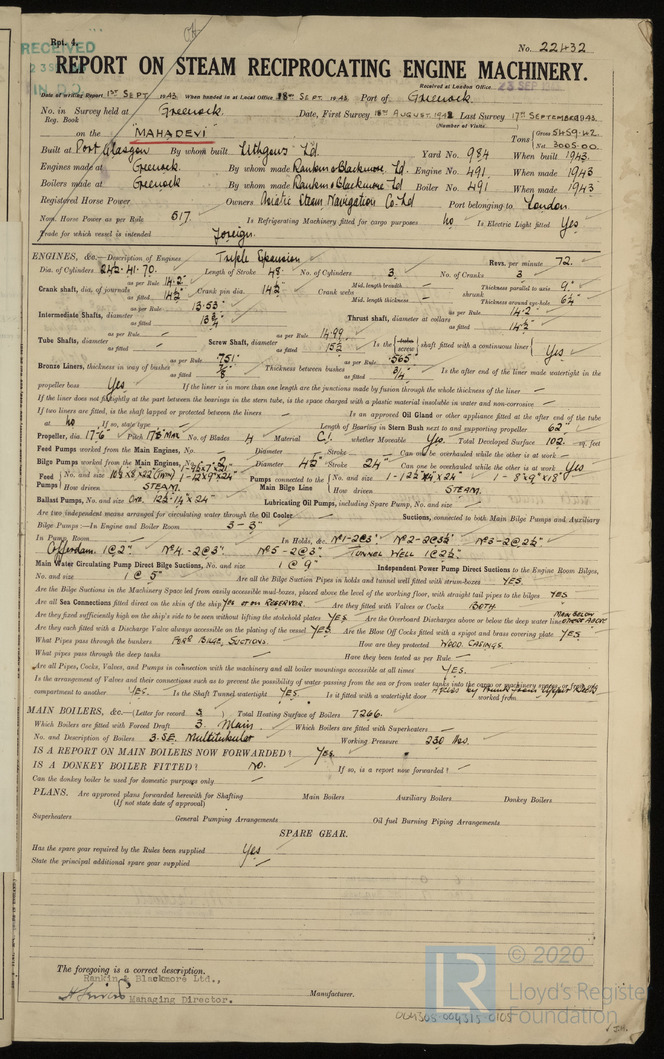 Rpt. 4.
RECEIVED
No. 22432
REPORT ON STEAM RECIPROCATING ENGINE MACHINERY.
Received at London Office 23 SEP
Date of writing Report 1st SEPT. 1943 When handed in at Local Office 18th SEPT. 1943 Port of Greenock
No. in Survey held at Greenock Date, First Survey AUGUST 1942 Last Survey 17th SEPTEMBER 1943
Reg. Book (Number of Visits
on the "MAHADEVI" Tons { Gross 5459.42 Net 3005.00
Built at Port Glasgow By whom built Lithgows Ld. Yard No. 984 When built 1943
Engines made at Greenock By whom made Rankin & Blackmore Ld. Engine No. 491 When made 1943
Boilers made at Greenock By whom made Rankin & Blackmore Ld Boiler No. 491 When made 1943
Registered Horse Power Owners Asiatic Steam Navigation Co Ld Port belonging to London
Nom. Horse Power as per Rule 517 Is Refrigerating Machinery fitted for cargo purposes No Is Electric Light fitted Yes
Trade for which vessel is intended Foreign.
ENGINES, &c.—Description of Engines Triple Expansion Revs. per minute 72.
Dia. of Cylinders 24½. 41. 70. Length of Stroke 48 No. of Cylinders 3 No. of Cranks 3
Crank shaft, dia. of journals as per Rule 14.2" as fitted 14½" Crank pin dia. 14½" Crank webs Mid. length breadth Mid. length thickness shrunk Thickness parallel to axis 9" Thickness around eye-hole 6¼"
Intermediate Shafts, diameter as per Rule 13.53" as fitted 13¾" Thrust shaft, diameter at collars as per Rule 14.2" as fitted 14½"
Tube Shafts, diameter as per Rule as fitted Screw Shaft, diameter as per Rule 14.99 as fitted 15¾ Is the { tube screw } shaft fitted with a continuous liner { Yes
Bronze Liners, thickness in way of bushes as per Rule .751" as fitted ⅞" Thickness between bushes as per Rule .565" as fitted ¾" Is the after end of the liner made watertight in the
propeller boss Yes If the liner is in more than one length are the junctions made by fusion through the whole thickness of the liner –
If the liner does not fit tightly at the part between the bearings in the stern tube, is the space charged with a plastic material insoluble in water and non-corrosive –
If two liners are fitted, is the shaft lapped or protected between the liners – Is an approved Oil Gland or other appliance fitted at the after end of the tube
shaft No If so, state type – Length of Bearing in Stern Bush next to and supporting propeller 62"
Propeller, dia. 17'-6" Pitch No. of Blades 4 Material C.I. whether Moveable Yes. Total Developed Surface 102 sq. feet
Feed Pumps worked from the Main Engines, No. – Diameter – Stroke – Can one be overhauled while the other is at work –
Bilge Pumps worked from the Main Engines, No. 2 Diameter 4½" Stroke 24" Can one be overhauled while the other is at work Yes
Feed Pumps { No. and size How driven STEAM. Pumps connected to the Main Bilge Line { No. and size 1-12½"x14"x24" 1-8"x9"x18" How driven STEAM.
Ballast Pumps, No. and size One. 12½"-14"x24" Lubricating Oil Pumps, including Spare Pump, No. and size –
Are two independent means arranged for circulating water through the Oil Cooler – Suctions, connected to both Main Bilge Pumps and Auxiliary
Bilge Pumps:—In Engine and Boiler Room 3 - 3"
In Pump Room In Holds, &c. No 1-2@3" No 2-2@3½" No 3-2@2½"
Cofferdam 1@2" No 4.-2@3" No 5-2@3" TUNNEL WELL 1@2½"
Main Water Circulating Pump Direct Bilge Suctions, No. and size 1 @ 9" Independent Power Pump Direct Suctions to the Engine Room Bilges,
No. and size 1 @ 5" Are all the Bilge Suction Pipes in holds and tunnel well fitted with strum-boxes YES.
Are the Bilge Suctions in the Machinery Space led from easily accessible mud-boxes, placed above the level of the working floor, with straight tail pipes to the bilges YES
Are all Sea Connections fitted direct on the skin of the ship Yes or on RESERVOIR. Are they fitted with Valves or Cocks BOTH
Are they fixed sufficiently high on the ship's side to be seen without lifting the stokehold plates YES Are the Overboard Discharges above or below the deep water line MAIN BELOW OTHERS ABOVE
Are they each fitted with a Discharge Valve always accessible on the plating of the vessel YES. Are the Blow Off Cocks fitted with a spigot and brass covering plate YES.
What Pipes pass through the bunkers FORD BILGE, SUCTIONS. How are they protected WOOD CASINGS.
What pipes pass through the deep tanks Have they been tested as per Rule –
Are all Pipes, Cocks, Valves, and Pumps in connection with the machinery and all boiler mountings accessible at all times YES.
Is the arrangement of Valves and their connections such as to prevent the possibility of water passing from the sea or from water tanks into the cargo or machinery spaces, or from one
compartment to another YES. Is the Shaft Tunnel watertight YES. Is it fitted with a watertight door Access by Trunk from Upper Deck worked from
MAIN BOILERS, &c.—(Letter for record S ) Total Heating Surface of Boilers 7266.
Which Boilers are fitted with Forced Draft 3. Main Which Boilers are fitted with Superheaters –
No. and Description of Boilers 3. S.E. Multitubular Working Pressure 230 lbs.
IS A REPORT ON MAIN BOILERS NOW FORWARDED? Yes.
IS A DONKEY BOILER FITTED? NO. If so, is a report now forwarded? –
Can the donkey boiler be used for domestic purposes only –
PLANS. Are approved plans forwarded herewith for Shafting Main Boilers Auxiliary Boilers Donkey Boilers
(If not state date of approval)
Superheaters General Pumping Arrangements Oil fuel Burning Piping Arrangements
SPARE GEAR.
Has the spare gear required by the Rules been supplied Yes
State the principal additional spare gear supplied
The foregoing is a correct description.
Rankin & Blackmore Ltd.,
Managing Director. Manufacturer.
LR
© 2020
Lloyd's Register
Foundation
004305-004315-0105